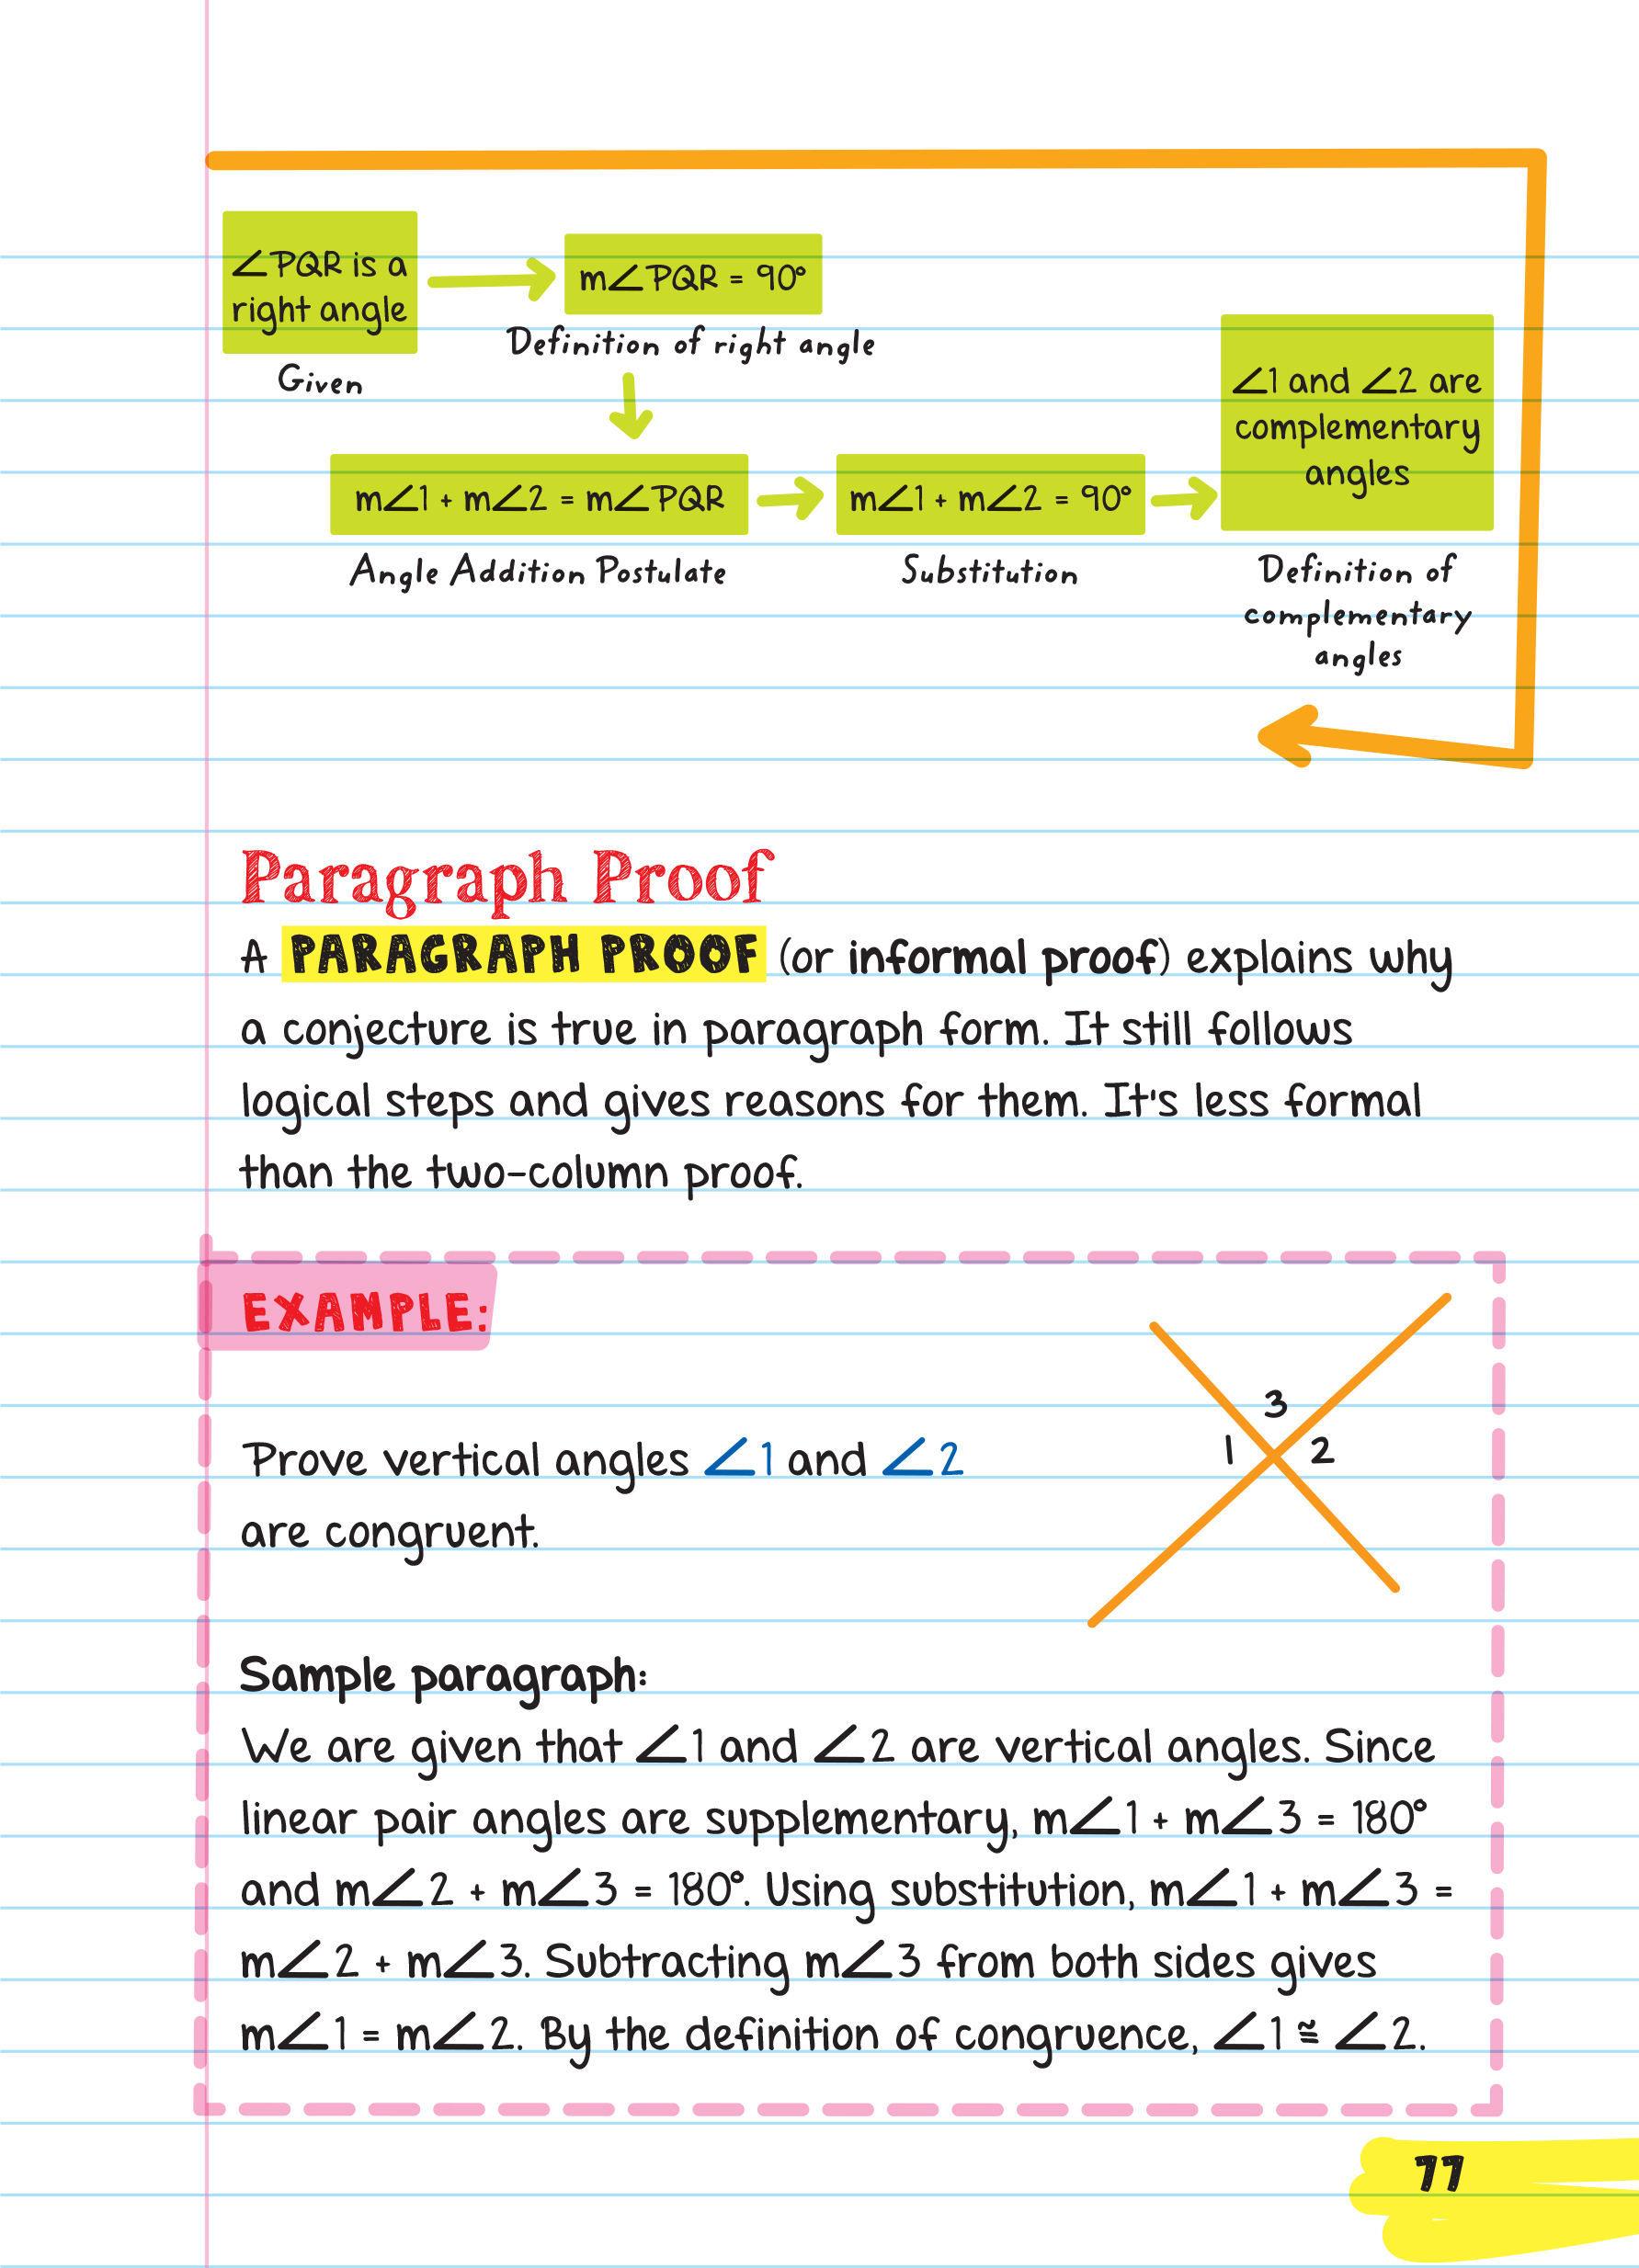 ∠PQR is a
right angle
Given
m∠PQR = 90°
Definition of right angle
m∠1 + m∠2 = m∠PQR
Angle Addition Postulate
m∠1 + m∠2 = 90°
Substitution
∠1 and ∠2 are
complementary
angles
Definition of
complementary
angles
Paragraph Proof
A PARAGRAPH PROOF (or informal proof) explains why
a conjecture is true in paragraph form. It still follows
logical steps and gives reasons for them. It's less formal
than the two-column proof.
EXAMPLE:
3
1 2
Prove vertical angles ∠1 and ∠2
are congruent.
Sample paragraph:
We are given that ∠1 and ∠2 are vertical angles. Since
linear pair angles are supplementary, m∠1 + m∠3 = 180°
and m∠2 + m∠3 = 180°. Using substitution, m∠1 + m∠3 =
m∠2 + m∠3. Subtracting m∠3 from both sides gives
m∠1 = m∠2. By the definition of congruence, ∠1 ≅ ∠2.
77